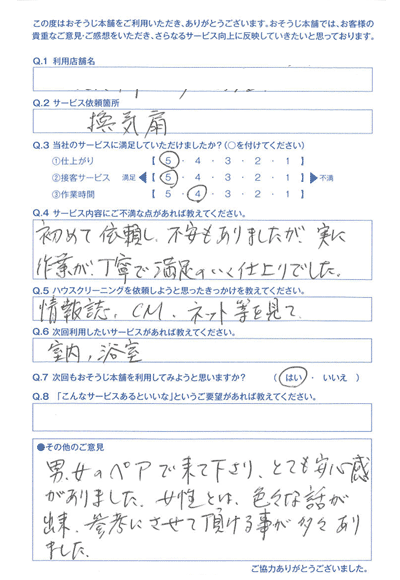 この度はおそうじ本舗をご利用いただき、ありがとうございます。おそうじ本舗では、お客様の
貴重なご意見・ご感想をいただき、さらなるサービス向上に反映していきたいと思っております。
Q.1 利用店舗名
Q.2 サービス依頼箇所
換気扇
Q.3 当社のサービスに満足していただけましたか？(○を付けてください)
①仕上がり 【 5 ・ 4 ・ 3 ・ 2 ・ 1 】
②接客サービス 満足 ◀【 5 ・ 4 ・ 3 ・ 2 ・ 1 】▶ 不満
③作業時間 【 5 ・ 4 ・ 3 ・ 2 ・ 1 】
Q.4 サービス内容にご不満な点があれば教えてください。
初めて依頼し、不安もありましたが、実に
作業が丁寧で満足のいく仕上りでした。
Q.5 ハウスクリーニングを依頼しようと思ったきっかけを教えてください。
情報誌、CM、ネット等を見て
Q.6 次回利用したいサービスがあれば教えてください。
室内，浴室
Q.7 次回もおそうじ本舗を利用してみようと思いますか？ ( はい ・ いいえ )
Q.8 「こんなサービスあるといいな」というご要望があれば教えてください。
●その他のご意見
男、女のペアで来て下さり、とても安心感
がありました。女性とは、色々な話が
出来、参考にさせて頂ける事が多々あり
ました。
ご協力ありがとうございました。